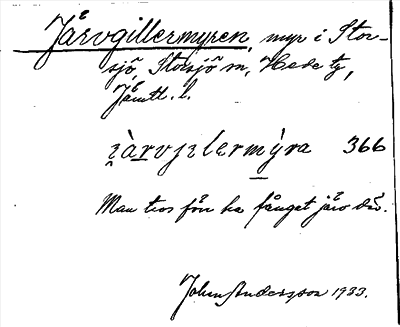 Järvgillermyren, myr i Stor-
sjö, Storsjö sn, Hede tg,
Jämtl. l.
i̯àrvjɪlermýra 366
Man tros förr ha fånget järv där.
John Andersson 1933.